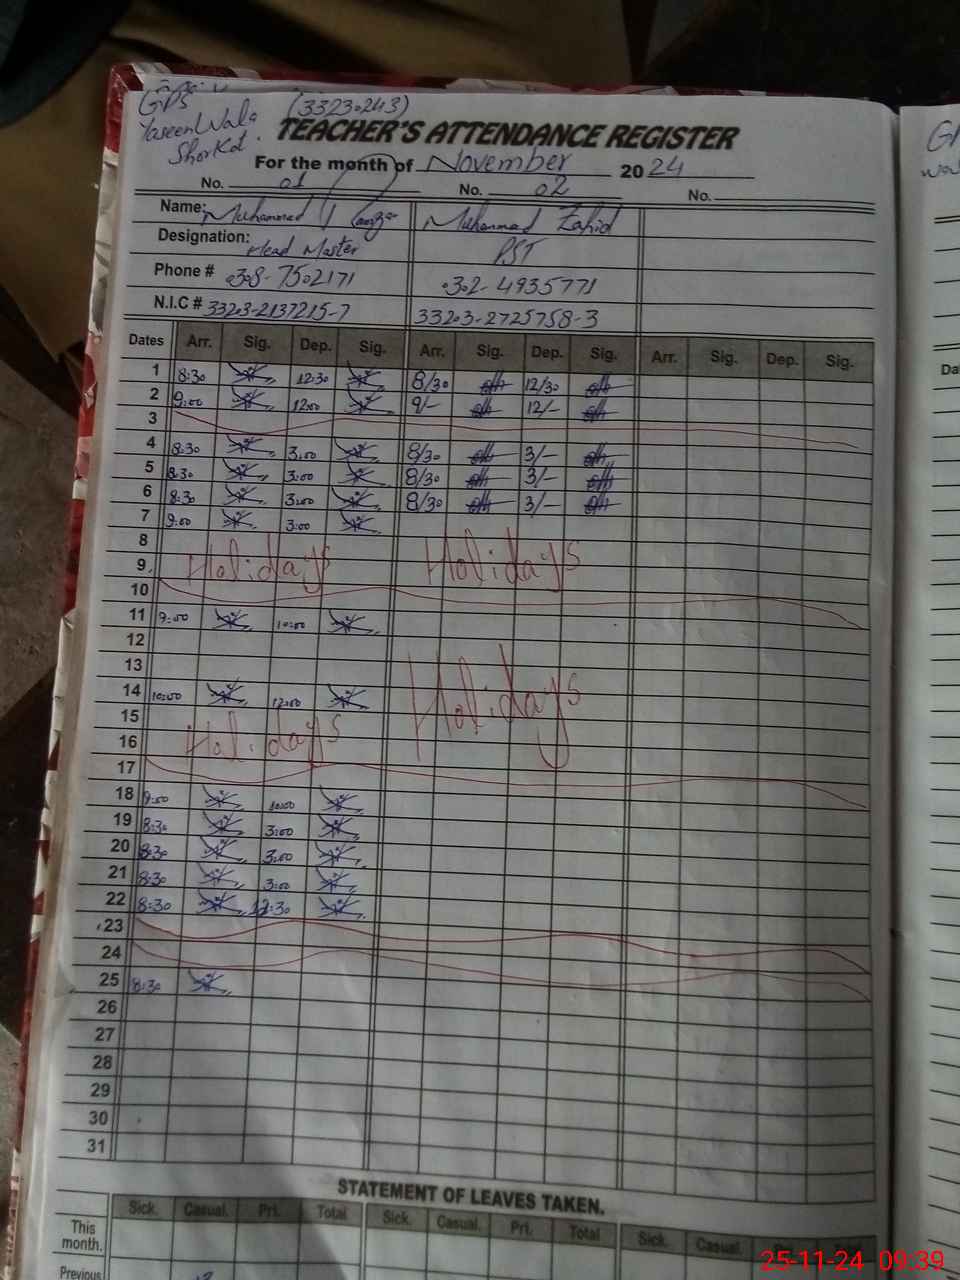 GPS (33230243)
YaseenWala
ShorKot.
TEACHER'S ATTENDANCE REGISTER
For the month of November 2024
No. 01 No. 02 No.
Name: Muhammad Muhammad Zahid
Designation: Head Master PST
Phone # 0308-7502171 0302-4935771
N.I.C # 33203-2137215-7 33203-2725758-3
Dates Arr. Sig. Dep. Sig. Arr. Sig. Dep. Sig. Arr. Sig. Dep. Sig.
1 8:30 12:30 8/30 12/30
2 9:00 12:00 9/- 12/-
3
4 8:30 3:00 8/30 3/-
5 8:30 3:00 8/30 3/-
6 8:30 3:00 8/30 3/-
7 9:00 3:00
8
9 Holidays Holidays
10
11 9:00 10:00
12
13
14 10:00 12:00 Holidays
15
16 Holidays
17
18 9:00 10:00
19 8:30 3:00
20 8:30 3:00
21 8:30 3:00
22 8:30 12:30
23
24
25 8:30
26
27
28
29
30
31
STATEMENT OF LEAVES TAKEN.
Sick. Casual. Pri. Total Sick. Casual. Pri. Total Sick. Casual.
This
month.
Previous
25-11-24 09:39